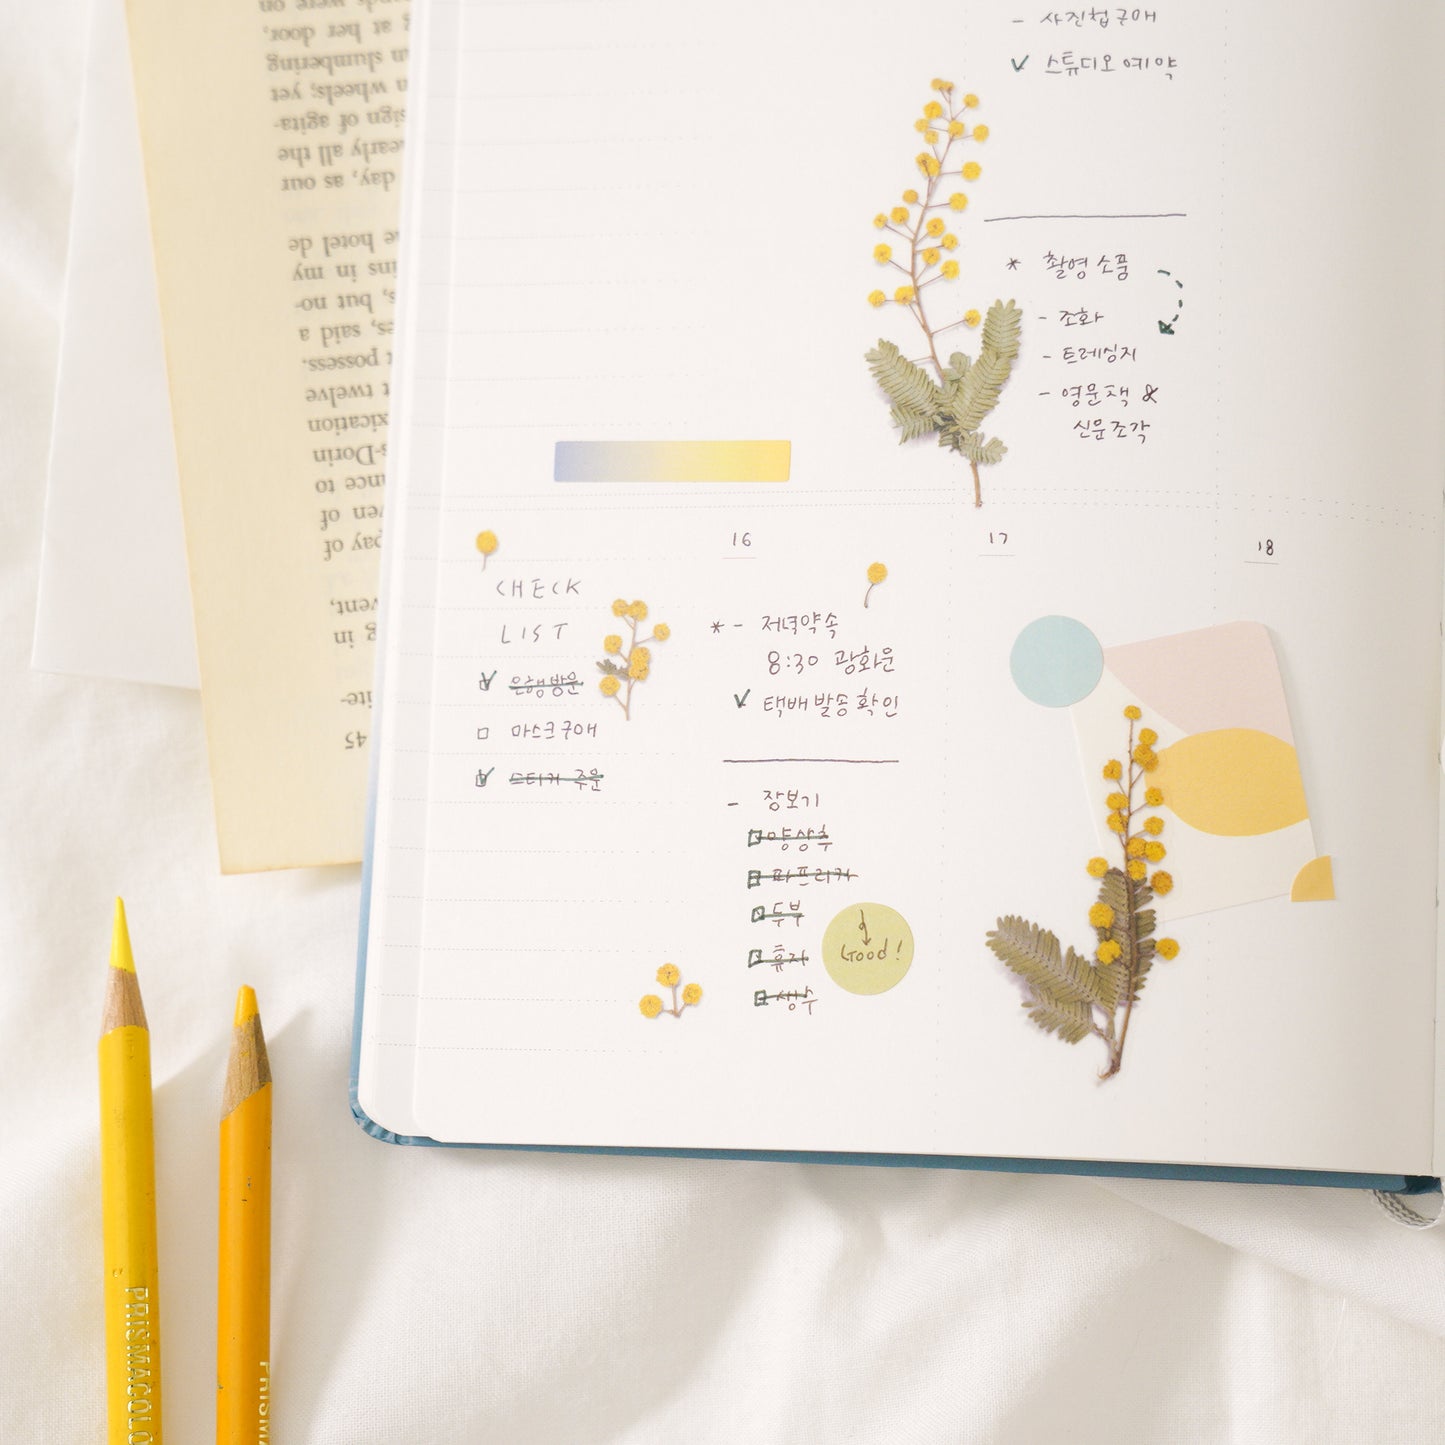 - 사진첩 구매
✓ 스튜디오 예약
* 촬영 소품
- 조화
- 트레싱지
- 영문책 &
신문 조각
CHECK
LIST
은행 방문
마스크 구매
스티커 주문
16
* - 저녁약속
8:30 광화문
✓ 택배 발송 확인
- 장보기
양상추
파프리카
두부
휴지
생수
Good!
17
18
on
door,
at her
slumbering
wheels; yet
sign of agita-
nearly all the
day, as our
hotel de
ins in my
s, but no-
es, said a
possess.
twelve
xication
s-Dorin
ance to
ven of
pay of
vent,
g in
ite-
45
PRISMACOLO
PRISMA